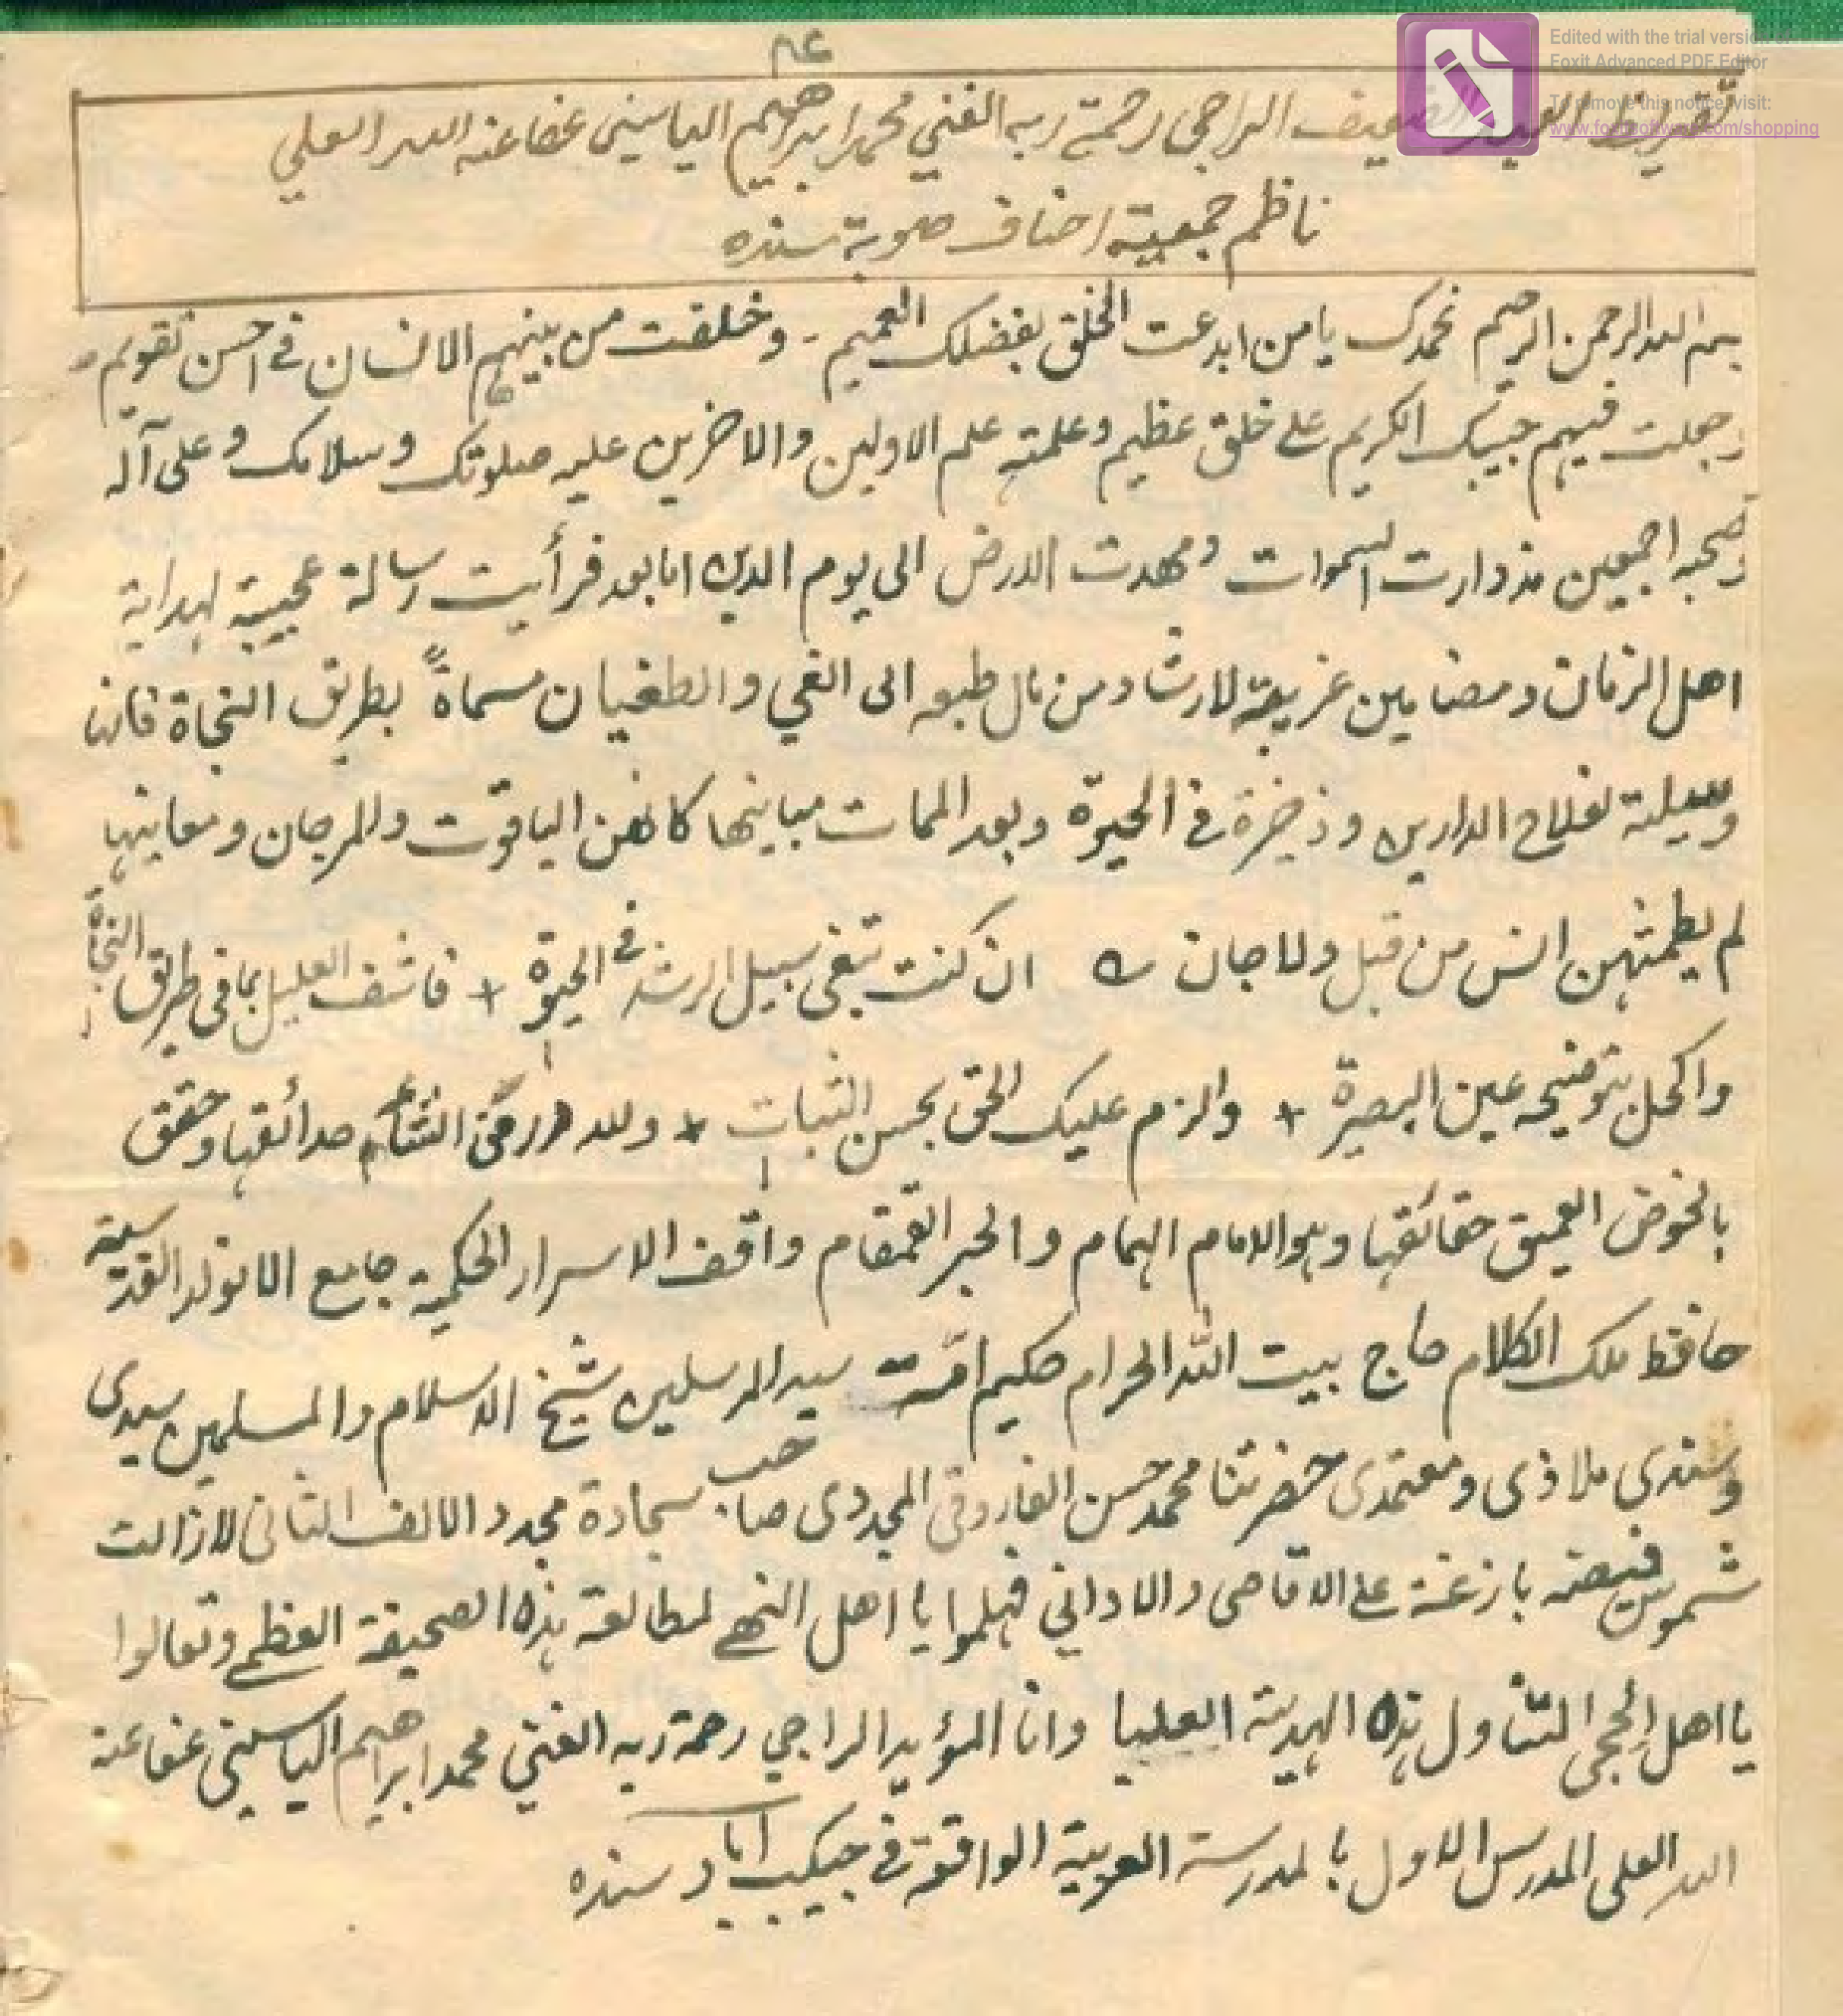 ٨٤
Edited with the trial version of
Foxit Advanced PDF Editor
To remove this notice, visit:
www.foxitsoftware.com/shopping
تقريظ العبد الضعيف الراجي رحمة ربه الغني محمد ابراهيم الياسيني عفا عنه الله العلي
ناظم جمعية احناف صوبة سنده
بسم الله الرحمن الرحيم نحمدك يا من ابدعت الخلق بفضلك العميم - وخلقت من بينهم الانسان في احسن تقويم -
وجعلت فيهم حبيبك الكريم على خلق عظيم وعلمته علم الاولين والاخرين عليه صلوتك وسلامك وعلى آله
وصحبه اجمعين مذ دارت السموات ومهدت الارض الى يوم الدين اما بعد فرأيت رسالة عجيبة لهداية
اهل الزمان ومضامين غريبة لارشاد من مال طبعه الى الغي والطغيان مسماةً بطريق النجاة فانها
وسيلة لفلاح الدارين وذخيرة في الحيوة وبعد الممات مبانيها كانهن الياقوت والمرجان ومعانيها
لم يطمثهن انس من قبل ولا جان ؎ ان كنت تبغي سبيل الرشد في الحيوة + فاشف العليل بما في طريق النجاة
واكحل بتوضيحه عين البصيرة + والزم عليك الحق بحسن الثبات + ولله در من حدائقها وحقق
بالخوض العميق حقائقها وهو الامام الهمام والحبر القمقام واقف الاسرار الحكمية جامع الانوار القدسية
حافظ ملك الكلام حاج بيت الله الحرام حكيم امة سيد المرسلين شيخ الاسلام والمسلمين سيدى
وسندي ملاذى ومعتمدى حضرتنا محمد حسن الفاروقى المجددى صاحب سجادة مجدد الالف الثانى لا زالت
شموس فيضه بازغة على الاقاصى والادانى فهلموا يا اهل النهى لمطالعة هذه الصحيفة العظمى وتعالوا
يا اهل الحجى لتناول هذه الهدية العليا وانا المؤيد الراجي رحمة ربه الغني محمد ابراهيم الياسيني عفا عنه
الله العلى المدرس الاول بالمدرسة العربية الواقعة في جيكب اباد سنده